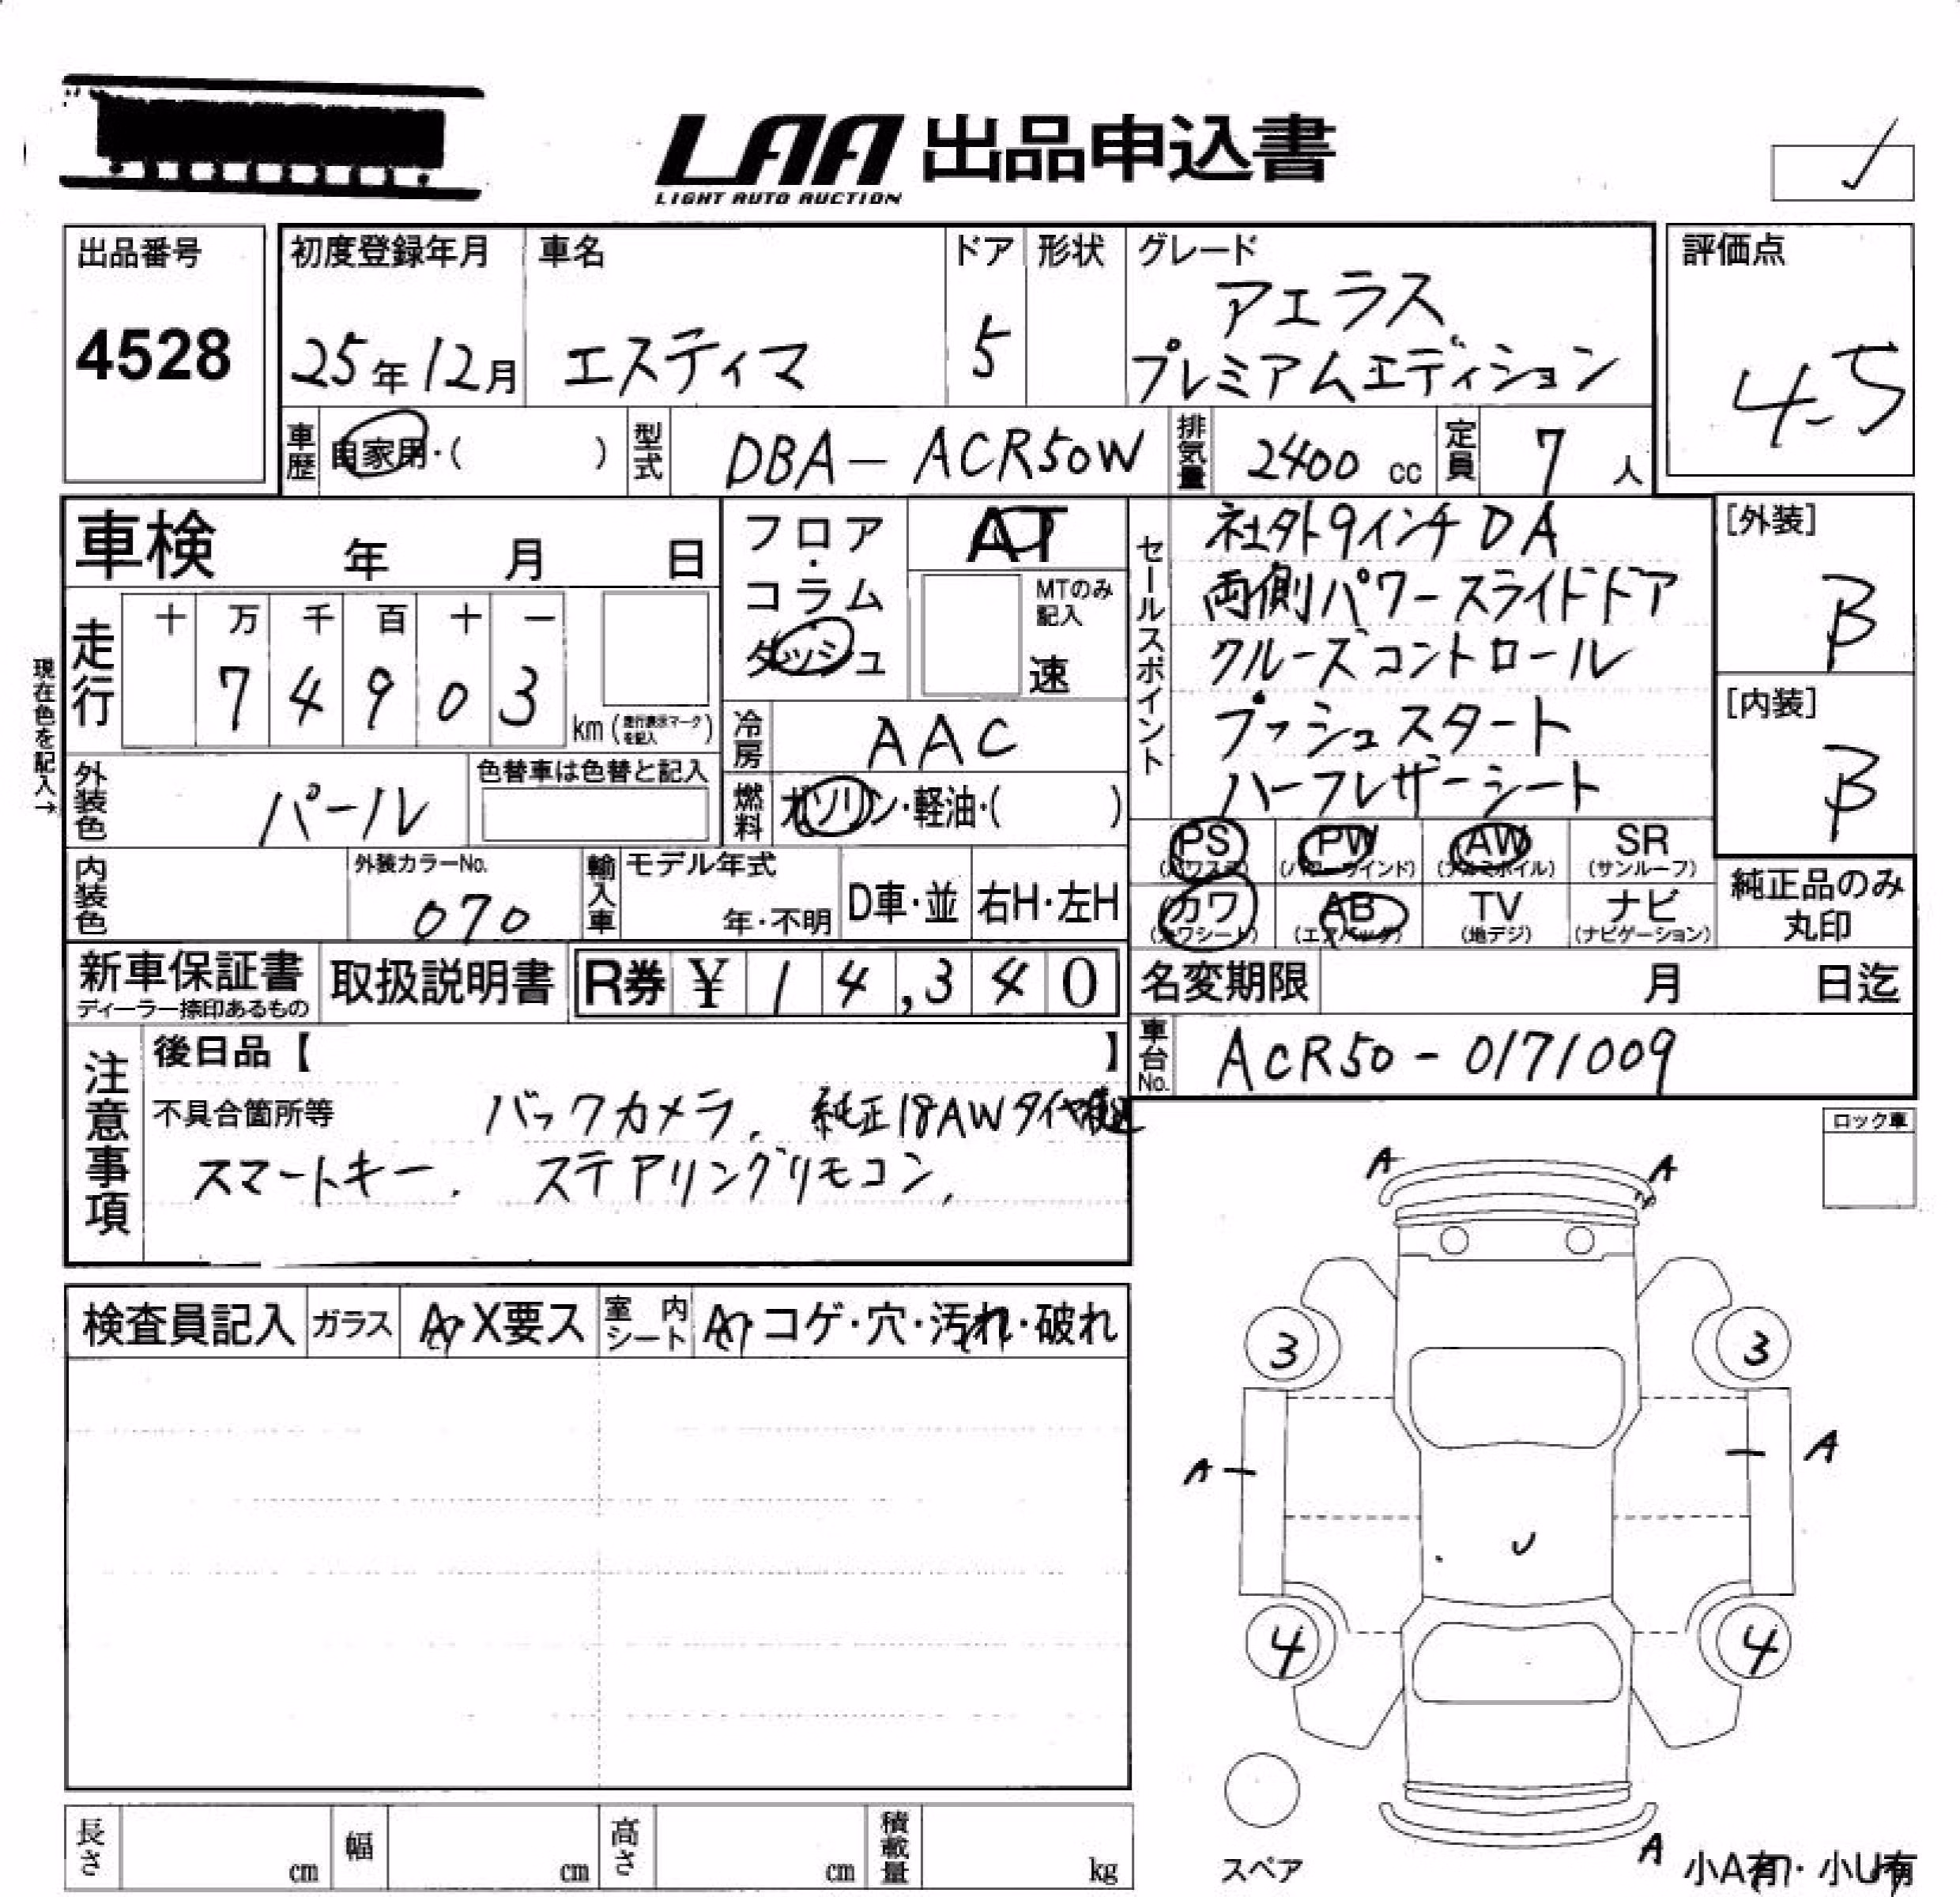 LAA 出品申込書
LIGHT AUTO AUCTION
出品番号
4528
初度登録年月
25年12月
車名
エスティマ
ドア
5
形状
グレード
アエラス
プレミアムエディション
評価点
4.5
車歴
自家用・( )
型式
DBA-ACR50W
排気量
2400 cc
定員
7 人
車検 年 月 日
フロア・コラム・ダッシュ
AT
MTのみ記入
速
セールスポイント
社外9インチDA
両側パワースライドドア
クルーズコントロール
プッシュスタート
ハーフレザーシート
[外装]
B
[内装]
B
現在色を記入→
走行
十 万 千 百 十 一
7 4 9 0 3
km (走行表示マークを記入)
冷房
AAC
外装色
パール
色替車は色替と記入
燃料
ガソリン・軽油・( )
PS (パワステ)
PW (パワーウインド)
AW (アルミホイル)
SR (サンルーフ)
カワ (カワシート)
AB (エアバッグ)
TV (地デジ)
ナビ (ナビゲーション)
純正品のみ丸印
内装色
外装カラーNo.
070
輸入車
モデル年式
年・不明
D車・並
右H・左H
新車保証書
ディーラー捺印あるもの
取扱説明書
R券 ¥ 14,340
名変期限 月 日迄
車台No.
ACR50-0171009
注意事項
後日品【 】
不具合箇所等
バックカメラ. 純正18AWタイヤ
スマートキー. ステアリングリモコン.
ロック車
A A
検査員記入
ガラス
A X要ス
室内シート
A・コゲ・穴・汚れ・破れ
3 3
A A
U
4 4
スペア
A
小A有・小U有
長さ cm
幅 cm
高さ cm
積載量 kg